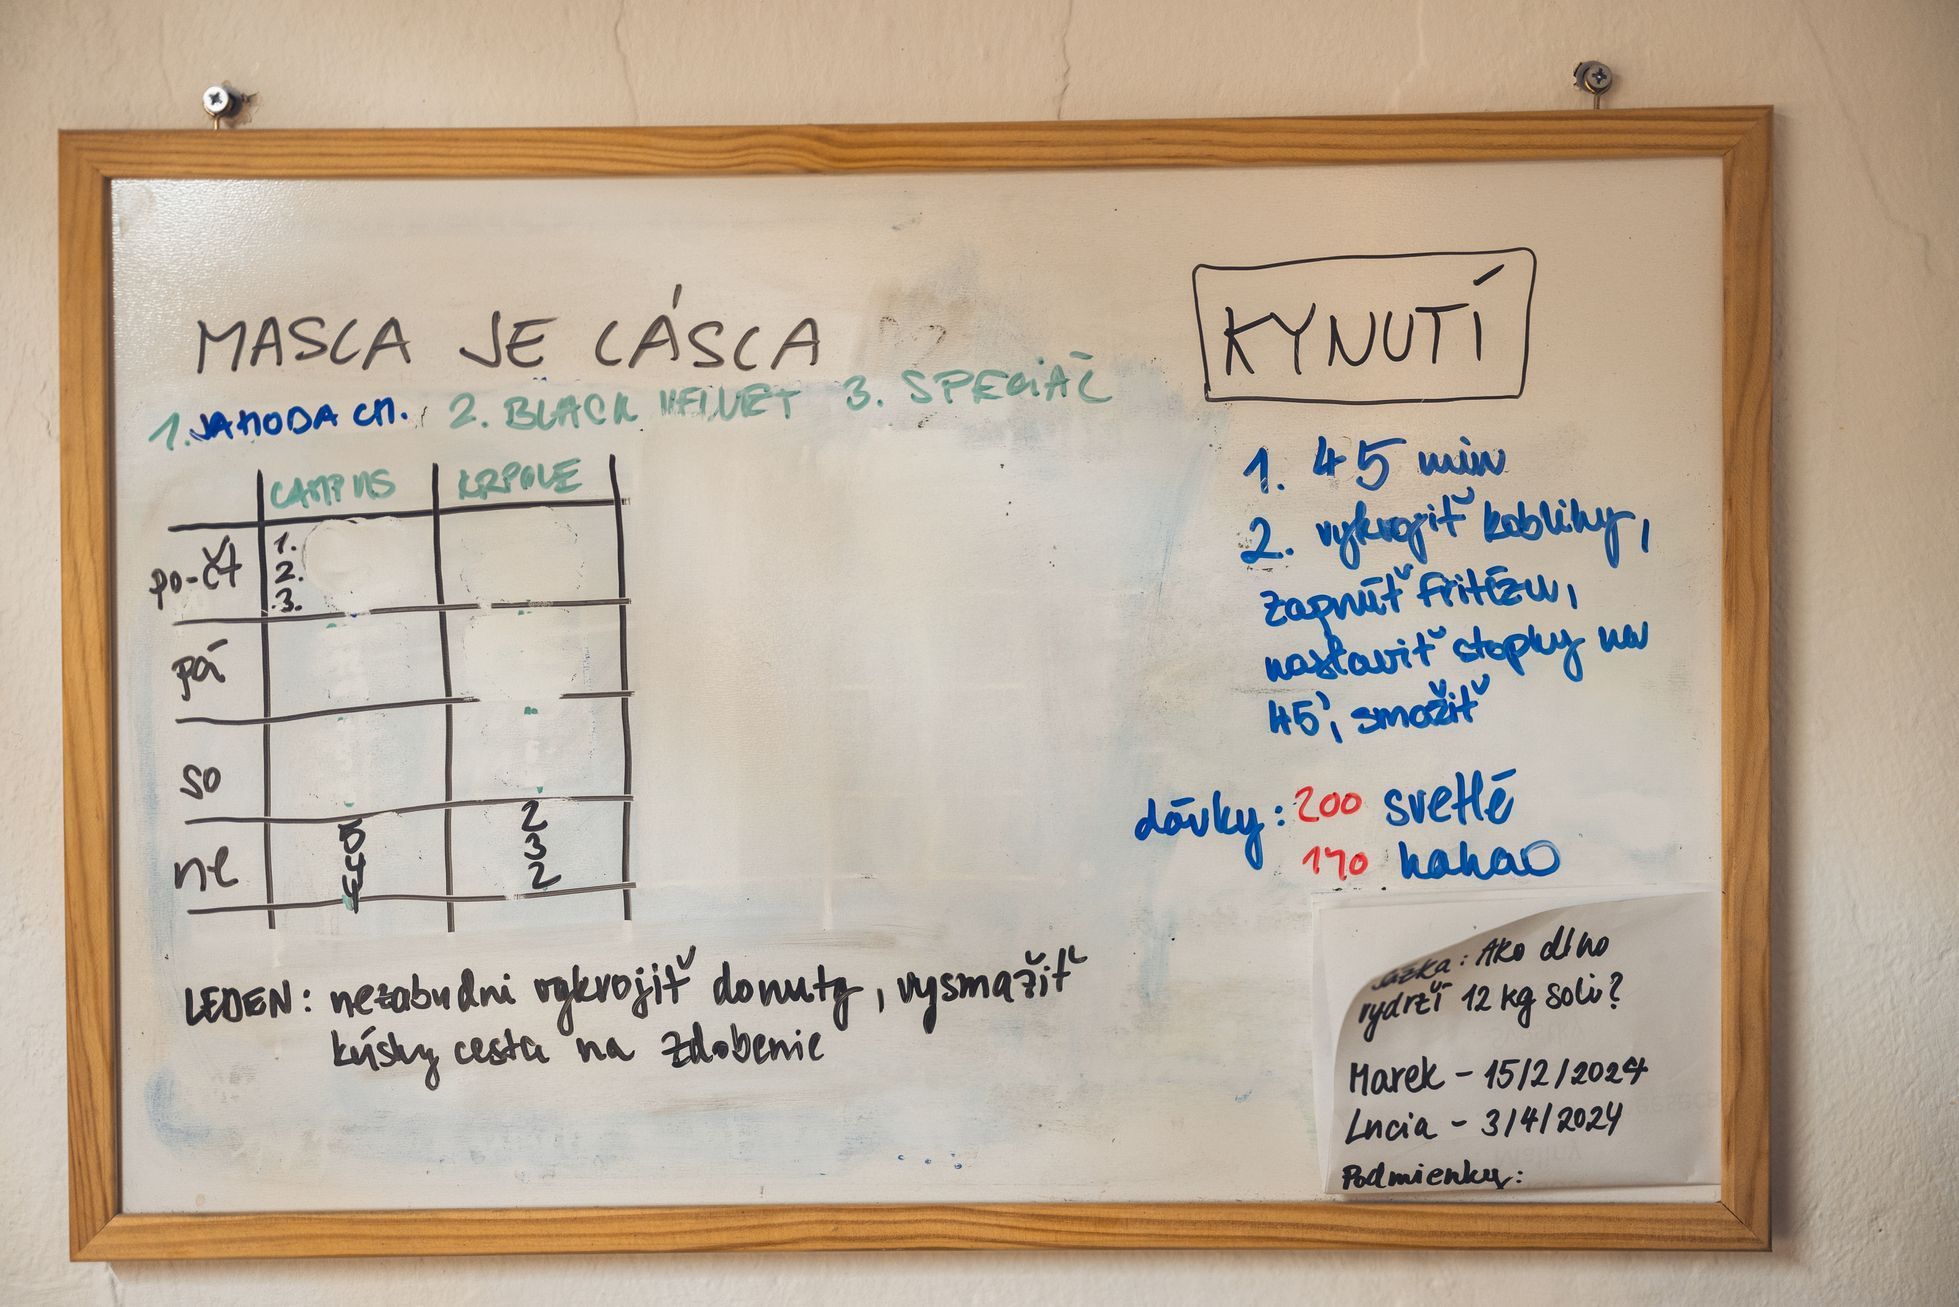 MASCA JE LÁSCA
1. JAHODA CH. 2. BLACK VELVET 3. SPECIÁL
CAMPUS KRPOLE
po-čt 1.
2.
3.
pá
so
ne 5 2
4 3
4 2
LEDEN: nezabudni vykrojiť donuty, vysmažiť
kúsky cesta na zdobenie
KYNUTÍ
1. 45 min
2. vykrojiť koblihy,
zapnúť fritézu,
nastaviť stopky na
45', smažiť
dávky: 200 svetlé
170 kakao
Sázka: Ako dlho
vydrží 12 kg soli?
Marek - 15/2/2024
Lucia - 3/4/2024
Podmienky: